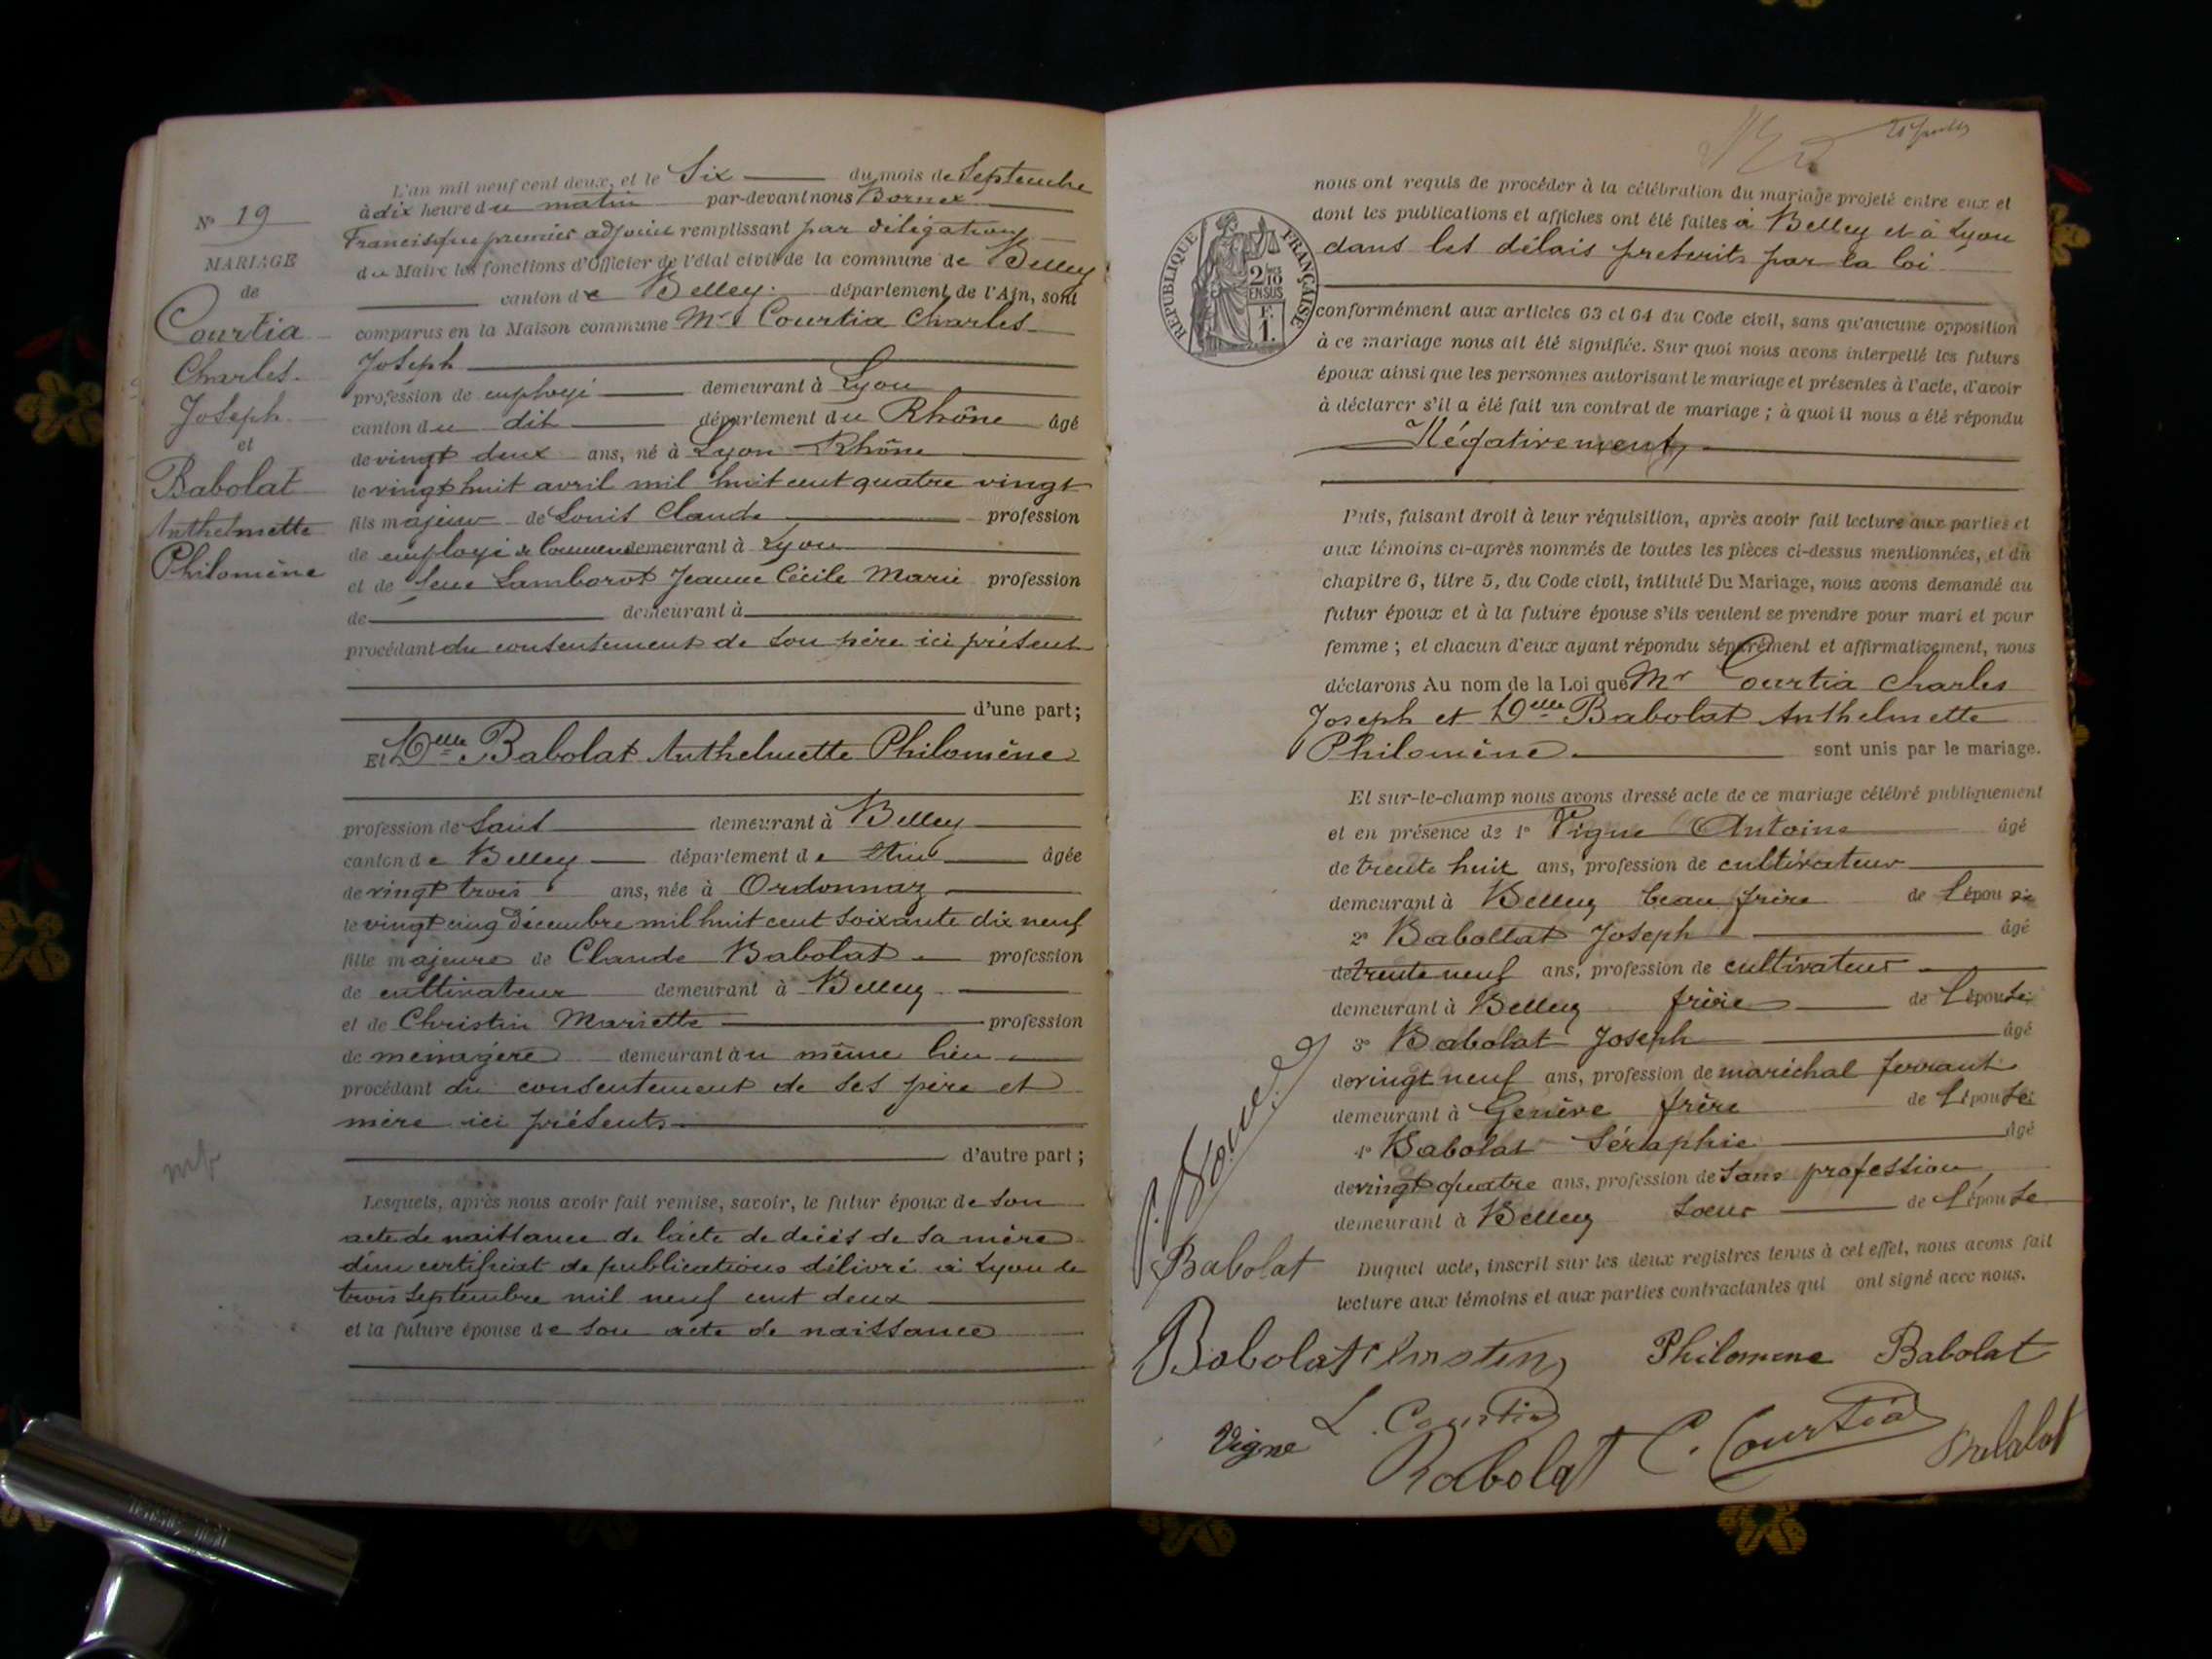 N° 19
MARIAGE
de
Courtia
Charles
Joseph
et
Babolat
Anthelmette
Philomène
L'an mil neuf cent deux, et le Six du mois de Septembre
à dix heure du matin par-devant nous Bornex
Francisque premier adjoint remplissant par délégation
du Maire les fonctions d'Officier de l'état civil de la commune de Belley
canton de Belley. département de l'Ain, sont
comparus en la Maison commune Mr Courtia Charles
Joseph
profession de employé demeurant à Lyon
canton du dit département du Rhône âgé
de vingt deux ans, né à Lyon Rhône
le vingt huit avril mil huit cent quatre vingt
fils majeur de Louis Claude profession
de employé de demeurant à Lyon
et de feue Lamborot Jeanne Cécile Marie profession
de demeurant à
procédant du consentement de son père ici présent
d'une part;
Et Delle Babolat Anthelmette Philomène
profession de Sans demeurant à Belley
canton de Belley département de Ain âgée
de vingt trois ans, née à Ordonnaz
le vingt cinq Décembre mil huit cent soixante dix neuf
fille majeure de Claude Babolat profession
de cultivateur demeurant à Belley
et de Christin Mariette profession
de ménagère demeurant au même lieu
procédant du consentement de ses père et
mère ici présents
d'autre part;
Lesquels, après nous avoir fait remise, savoir, le futur époux de son
acte de naissance de l'acte de décès de sa mère
d'un certificat de publications délivré à Lyon le
trois Septembre mil neuf cent deux
et la future épouse de son acte de naissance
nous ont requis de procéder à la célébration du mariage projeté entre eux et
dont les publications et affiches ont été faites à Belley et à Lyon
dans les délais prescrits par la loi
RÉPUBLIQUE FRANÇAISE
2/10
EN SUS
F.
1.
conformément aux articles 63 et 64 du Code civil, sans qu'aucune opposition
à ce mariage nous ait été signifiée. Sur quoi nous avons interpellé les futurs
époux ainsi que les personnes autorisant le mariage et présentes à l'acte, d'avoir
à déclarer s'il a été fait un contrat de mariage; à quoi il nous a été répondu
Négativement
Puis, faisant droit à leur réquisition, après avoir fait lecture aux parties et
aux témoins ci-après nommés de toutes les pièces ci-dessus mentionnées, et du
chapitre 6, titre 5, du Code civil, intitulé Du Mariage, nous avons demandé au
futur époux et à la future épouse s'ils veulent se prendre pour mari et pour
femme; et chacun d'eux ayant répondu séparément et affirmativement, nous
déclarons Au nom de la Loi que Mr Courtia Charles
Joseph et Delle Babolat Anthelmette
Philomène sont unis par le mariage.
Et sur-le-champ nous avons dressé acte de ce mariage célébré publiquement
et en présence de 1° Vigne Antoine âgé
de trente huit ans, profession de cultivateur
demeurant à Belley beau frère de l'épouse
2° Babollat Joseph âgé
de trente neuf ans, profession de cultivateur
demeurant à Belley frère de l'épouse
3° Babolat Joseph âgé
de vingt neuf ans, profession de maréchal ferrant
demeurant à Genève frère de l'épouse
4° Babolat Séraphie âgé
de vingt quatre ans, profession de Sans profession
demeurant à Belley Soeur de l'épouse
Duquel acte, inscrit sur les deux registres tenus à cet effet, nous avons fait
lecture aux témoins et aux parties contractantes qui ont signé avec nous.
Babolat
Babolat Philomene Babolat
Vigne L. Courtia
Babolat C. Courtia